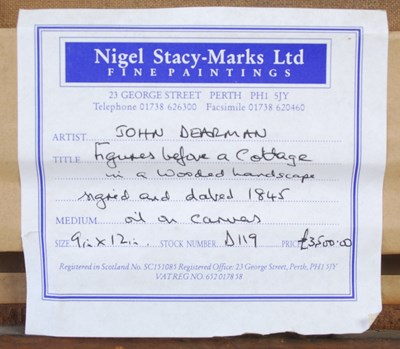 Nigel Stacy-Marks Ltd
FINE PAINTINGS
23 GEORGE STREET PERTH PH1 5JY
Telephone 01738 626300 Facsimile 01738 620460
ARTIST JOHN DEARMAN
TITLE Figures before a Cottage
in a Wooded Landscape
signed and dated 1845
MEDIUM oil on canvas
SIZE 9in x 12in. STOCK NUMBER D119 PRICE £3,500.00
Registered in Scotland No. SC151085 Registered Office: 23 George Street, Perth, PH1 5JY
VAT REG NO. 652 0178 38